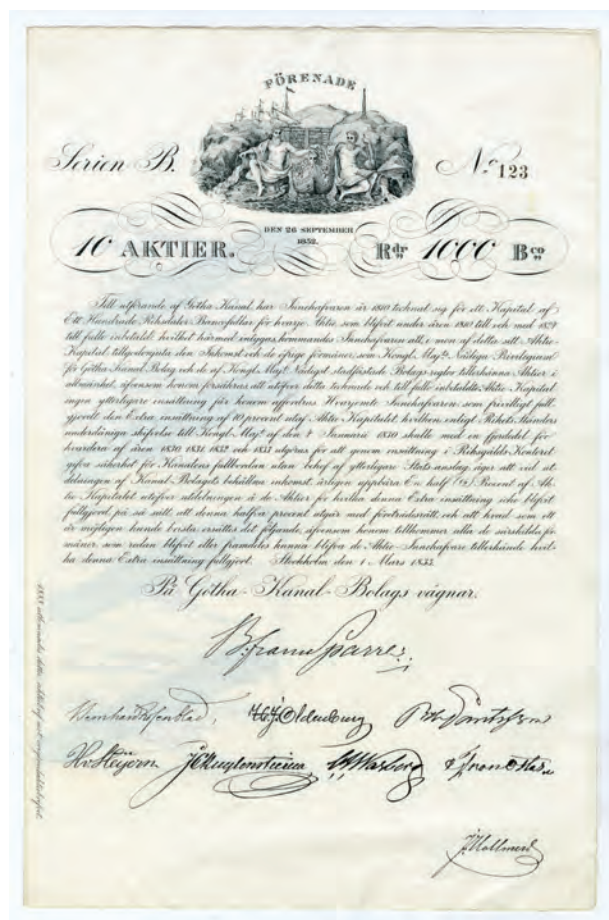 FÖRENADE
Serien B.
No 123
DEN 26 SEPTEMBER
1832.
10 AKTIER.
Rdr 1000 Bco
Till utförande af Götha Kanal, har Innehafvaren år 1810 tecknat sig för ett Kapital af
Ett Hundrade Riksdaler Banco för hvarje Aktie, som blifvit under åren 1810 till och med 1824
till fullo inbetaldt; hvilket härmed intygas, kommandes Innehafvaren att, i mon af detta sitt Aktie-
Kapital tillgodonjuta den Inkomst och de öfrige förmåner, som Kongl. Majts Nådiga Privilegium
för Götha Kanal Bolag och de af Kongl. Majt Nådigst stadfästade Bolags-reglor tillerkänna Aktier i
allmänhet, äfvensom honom försäkras att utöfver detta tecknade och till fullo inbetaldta Aktie-Kapital
ingen ytterligare insättning får honom affordras. Hvarjemte Innehafvaren, som frivilligt full-
gjordt den Extra insättning af 10 procent utaf Aktie-Kapitalet, hvilken, enligt Rikets Ständers
underdåniga skrifvelse till Kongl. Majt af den Januarii 1830 skulle med en fjerdedel för
hvardera af åren 1830, 1831, 1832 och 1833 utgöras för att genom insättning i Riksgälds Kontoret
gifva säkerhet för Kanalens fullbordan utan behof af ytterligare Stats-anslag, äger att vid ut-
delningen af Kanal-Bolagets behållna inkomst årligen uppbära En half (½) Procent af Ak-
tie-Kapitalet utöfver utdelningen å de Aktier för hvilka denna Extra insättning icke blifvit
fullgjord, på så sätt, att denna halfva procent utgår med företrädesrätt och att hvad som ett
år möjligen kunde brista ersättes det följande, äfvensom honom tillkommer alla de särskildta för-
måner, som redan blifvit eller framdeles kunna blifva de Aktie-Innehafvare tillerkände hvil-
ka denna Extra insättning fullgjort. Stockholm den 1 Mars 1833.
På Götha-Kanal-Bolags vägnar.
B. franc Sparre